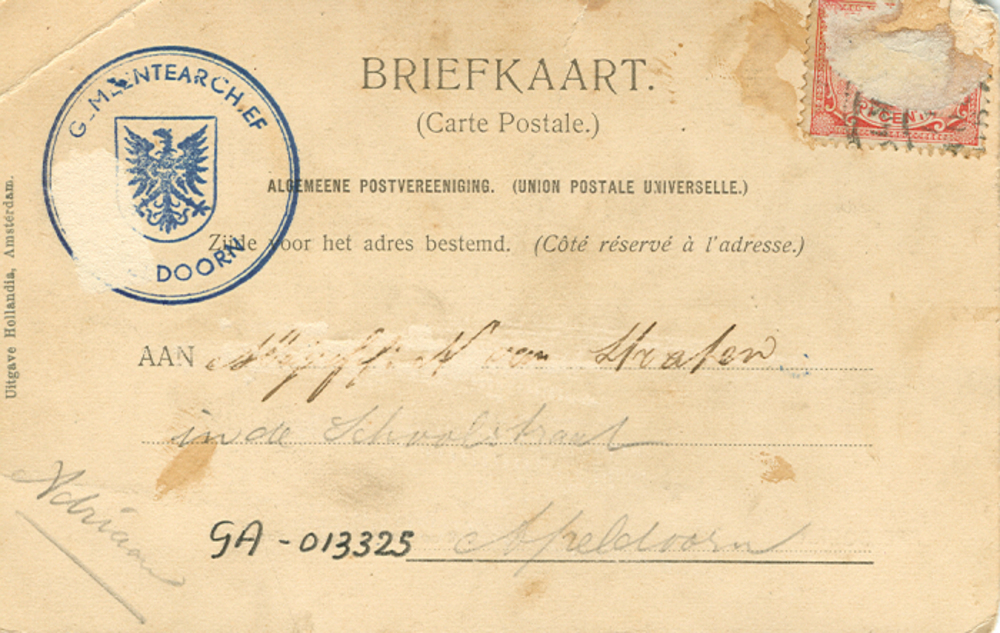 GEMEENTEARCHIEF
DOORN
BRIEFKAART.
(Carte Postale.)
ALGEMEENE POSTVEREENIGING. (UNION POSTALE UNIVERSELLE.)
Zijde voor het adres bestemd. (Côté réservé à l'adresse.)
Uitgave Hollandia, Amsterdam.
CENT
AAN van Straten
in de Schoolstraat
Adriaan
GA-013325 Apeldoorn